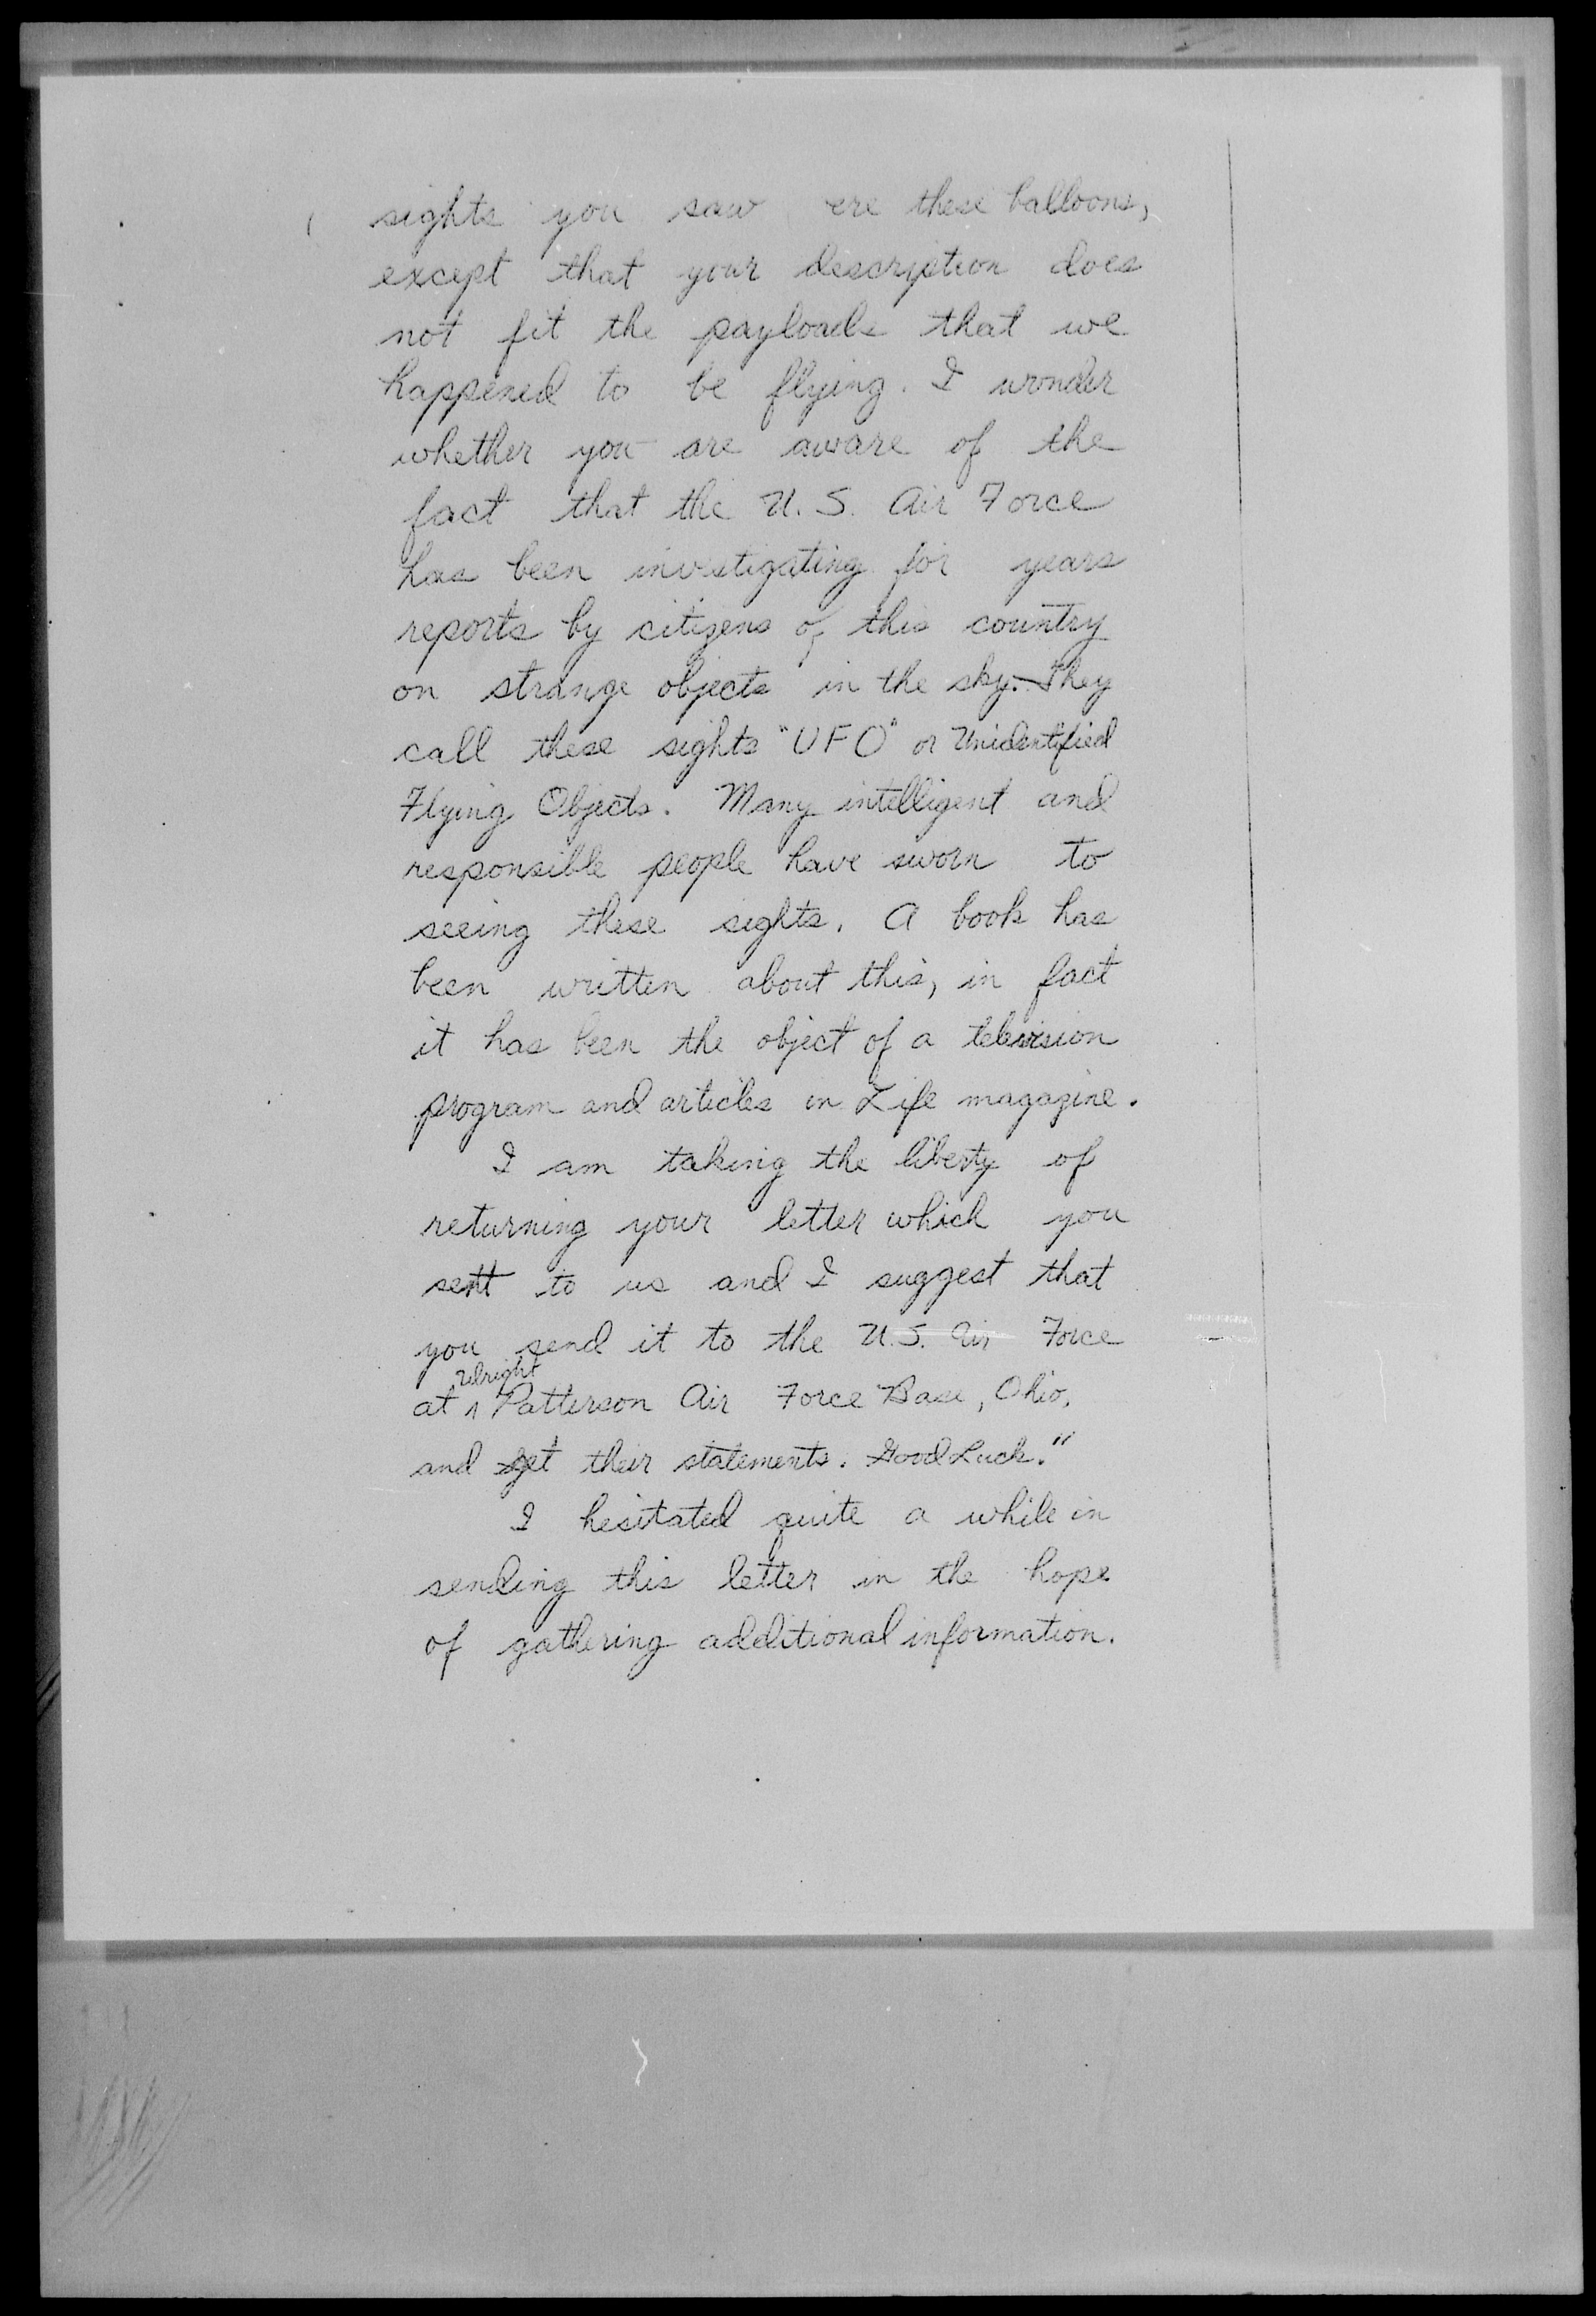 sights you saw ere these balloons,
except that your description does
not fit the payloads that we
happened to be flying. I wonder
whether you are aware of the
fact that the U.S. Air Force
has been investigating for years
reports by citizens of this country
on strange objects in the sky. They
call these sights "UFO" or Unidentified
Flying Objects. Many intelligent and
responsible people have sworn to
seeing these sights. A book has
been written about this, in fact
it has been the object of a television
program and articles in Life magazine.
I am taking the liberty of
returning your letter which you
sent to us and I suggest that
you send it to the U.S. Air Force
Wright
at ^ Patterson Air Force Base, Ohio,
and get their statements. Good Luck."
I hesitated quite a while in
sending this letter in the hope
of gathering additional information.